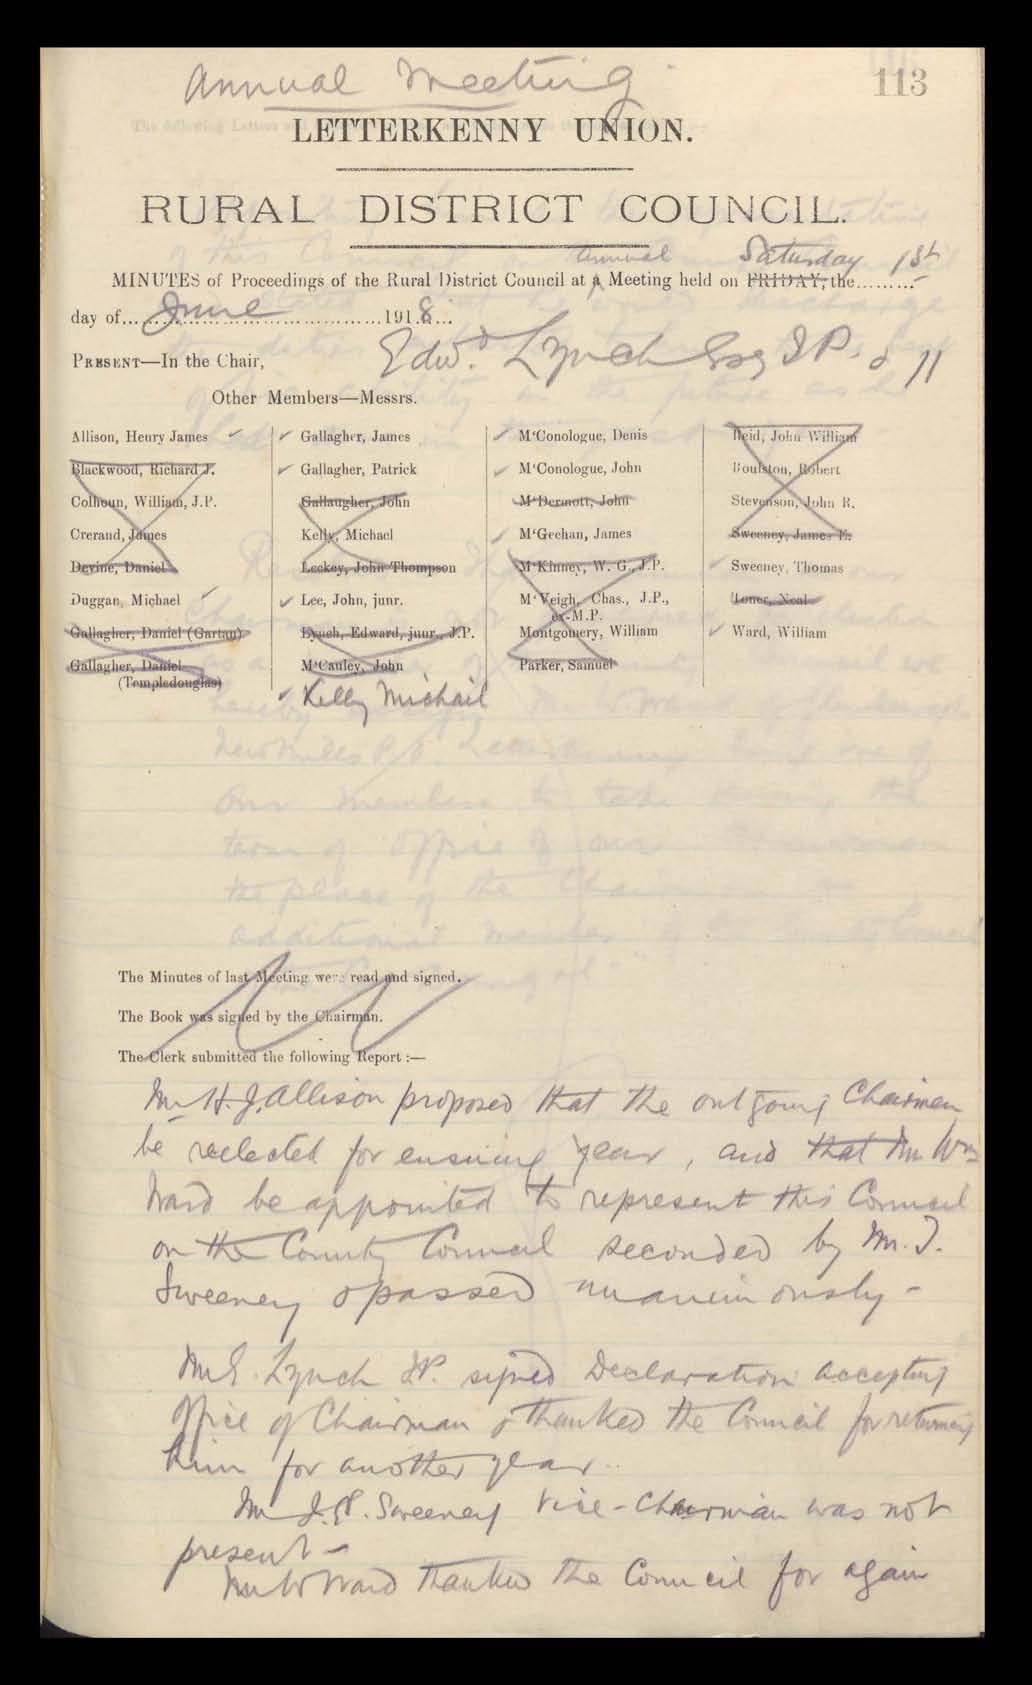 Annual Meeting
113
LETTERKENNY UNION.
RURAL DISTRICT COUNCIL.
annual Saturday 1st
MINUTES of Proceedings of the Rural District Council at a Meeting held on FRIDAY, the.........
day of... June ...1918...
PRESENT—In the Chair, Edwd Lynch Esq J.P. & 11
Other Members—Messrs.
Allison, Henry James
Blackwood, Richard J.
Colhoun, William, J.P.
Crerand, James
Devine, Daniel
Duggan, Michael
Gallagher, Daniel (Gartan)
Gallagher, Daniel
(Templedouglas)
Gallagher, James
Gallagher, Patrick
Gallaugher, John
Kelly, Michael
Leckey, John Thompson
Lee, John, junr.
Lynch, Edward, junr., J.P.
M'Cauley, John
Kelly Michael
M'Conologue, Denis
M'Conologue, John
M'Dermott, John
M'Geehan, James
M'Kinney, W. G., J.P.
M'Veigh, Chas., J.P.,
ex-M.P.
Montgomery, William
Parker, Samuel
Reid, John William
Roulston, Robert
Stevenson, John R.
Sweeney, James E.
Sweeney, Thomas
Toner, Neal
Ward, William
The Minutes of last Meeting were read and signed.
The Book was signed by the Chairman.
The Clerk submitted the following Report :—
Mr H. J. Allison proposed that the outgoing Chairman
be reelected for ensuing year, and that Mr Wm
Ward be appointed to represent this Council
on the County Council seconded by Mr. T.
Sweeney & passed unanimously -
Mr E. Lynch J.P. signed Declaration accepting
office of Chairman & thanked the Council for returning
him for another year.
Mr J. E. Sweeney Vice-Chairman was not
present -
Mr W Ward thanked the Council for again